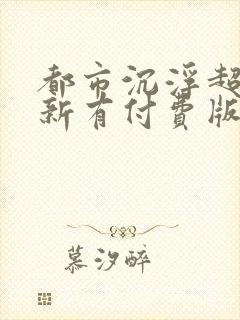 都市沉浮超
新有付费版
慕汐醉